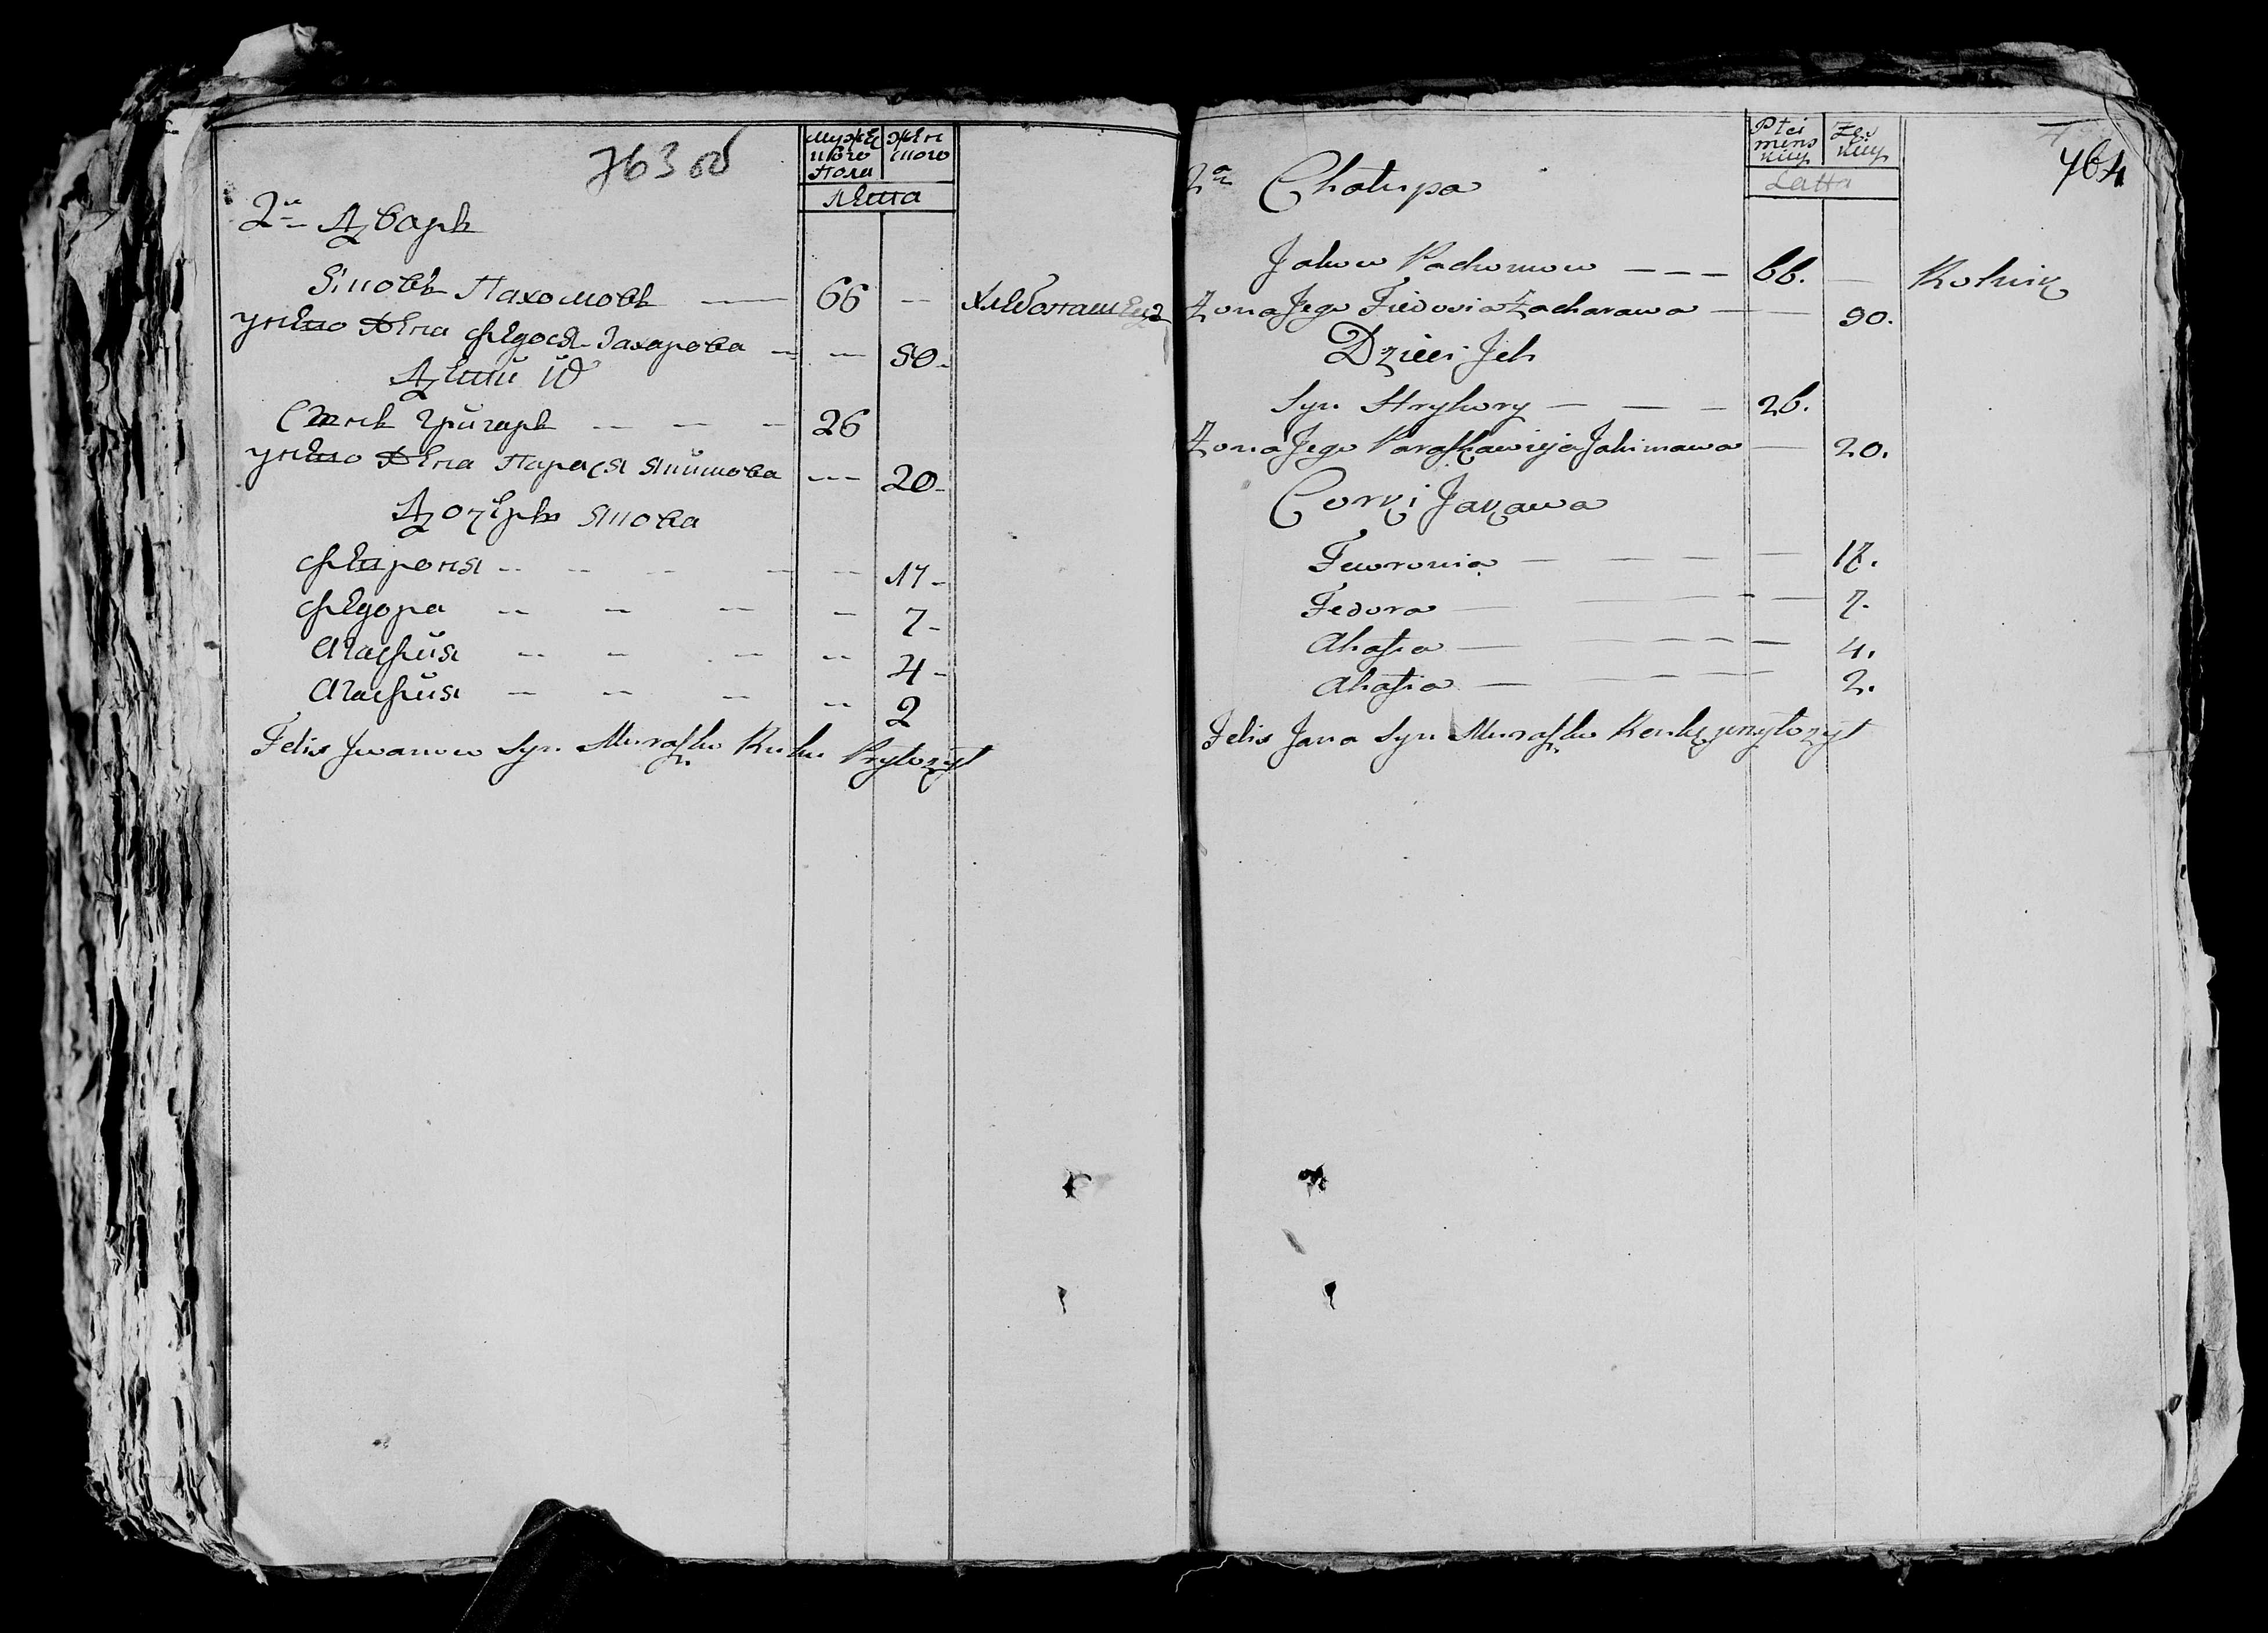 763 об
Мужес
кого
Пола
Жен
ского
Лета
2й Дваръ
Яковъ Пахомовъ — 66 —
Хлебопашецъ
у него Жена Федося Захарова — — 50
Дети их
Сынъ Григаръ — — — 26
у него Жена Парася Якимова — 20
Дочерѣ Якова
Феѵроня — — — — — 17
Федора — — — — 7
Агафия — — — — 4
Агафия — — — — 2
Felix Jwanow Syn Muraszko Ruku Pryłożył
764
Płci
męns
kiey
Żeń
kiey
Latta
2a Chałupa
Jakow Pachomow — — — 66. —
Rolnik
Żona Jego Fiedosia Zacharawa — — 50.
Dzieci Jch
Syn Hryhory — — — 26.
Żona Jego Paraskawieja Jakimawa — 20.
Corki Jakawa
Fewronia — — — — 17.
Fedora — — — — 7.
Ahafia — — — — 4.
Ahafia — — — — 2.
Felix Jana Syn Muraszko Renkę przyłożył